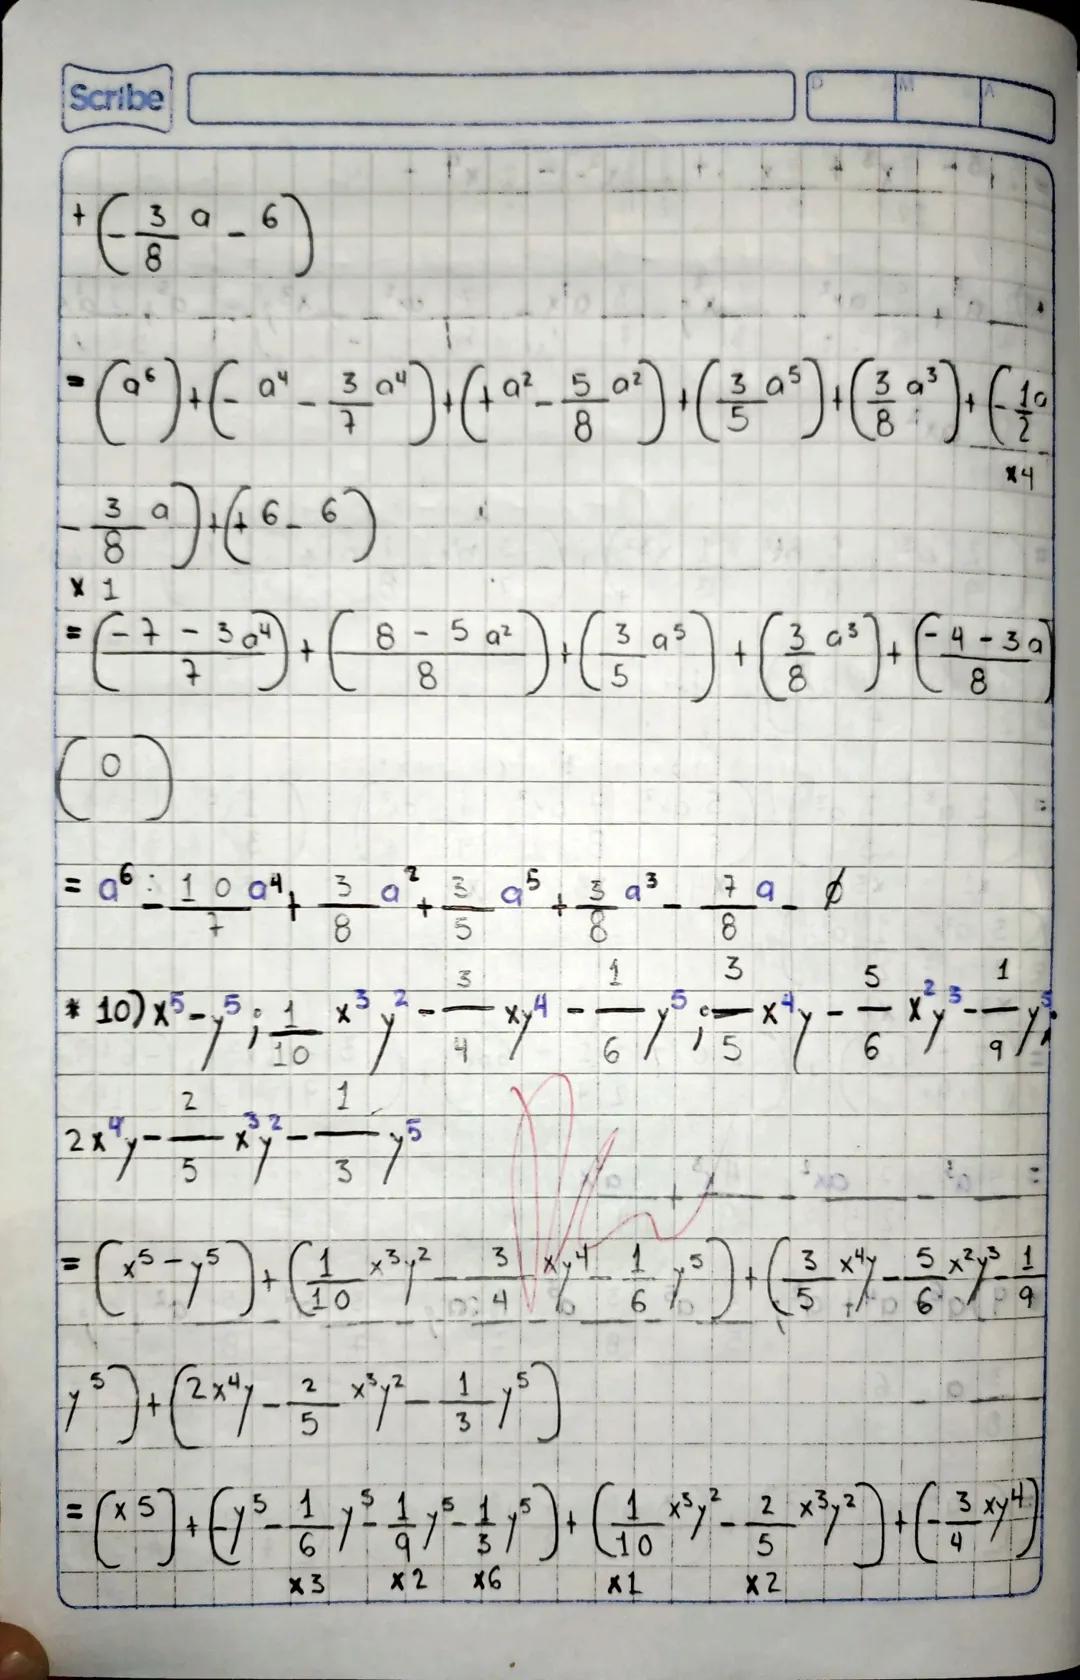 Scribe
D M A
+(-3/8 a - 6)
= (a⁶)+(- a⁴ - 3/7 a⁴)+(+a² - 5/8 a²)+(3/5 a⁵)+(3/8 a³)+(-1/2 a
×4
- 3/8 a)+(+6 - 6)
× 1
= (-7 - 3a⁴/7)+(8 - 5a²/8)+(3/5 a⁵)+(3/8 a³)+(-4 - 3a/8)
(0)
= a⁶ - 10/7 a⁴ + 3/8 a² + 3/5 a⁵ + 3/8 a³ - 7/8 a - ∅
* 10) x⁵-y⁵; 1/10 x³y² - 3/4 xy⁴ - 1/6 y⁵; 3/5 x⁴y - 5/6 x²y³ - 1/9 y⁵;
2x⁴y - 2/5 x³y² - 1/3 y⁵
= (x⁵-y⁵)+(1/10 x³y² - 3/4 xy⁴ - 1/6 y⁵)+(3/5 x⁴y - 5/6 x²y³ - 1/9
y⁵)+(2x⁴y - 2/5 x³y² - 1/3 y⁵)
= (x5)+(-y⁵ - 1/6 y⁵ - 1/9 y⁵ - 1/3 y⁵)+(1/10 x³y² - 2/5 x³y²)+(-3/4 xy⁴)
×3 ×2 ×6 ×1 ×2